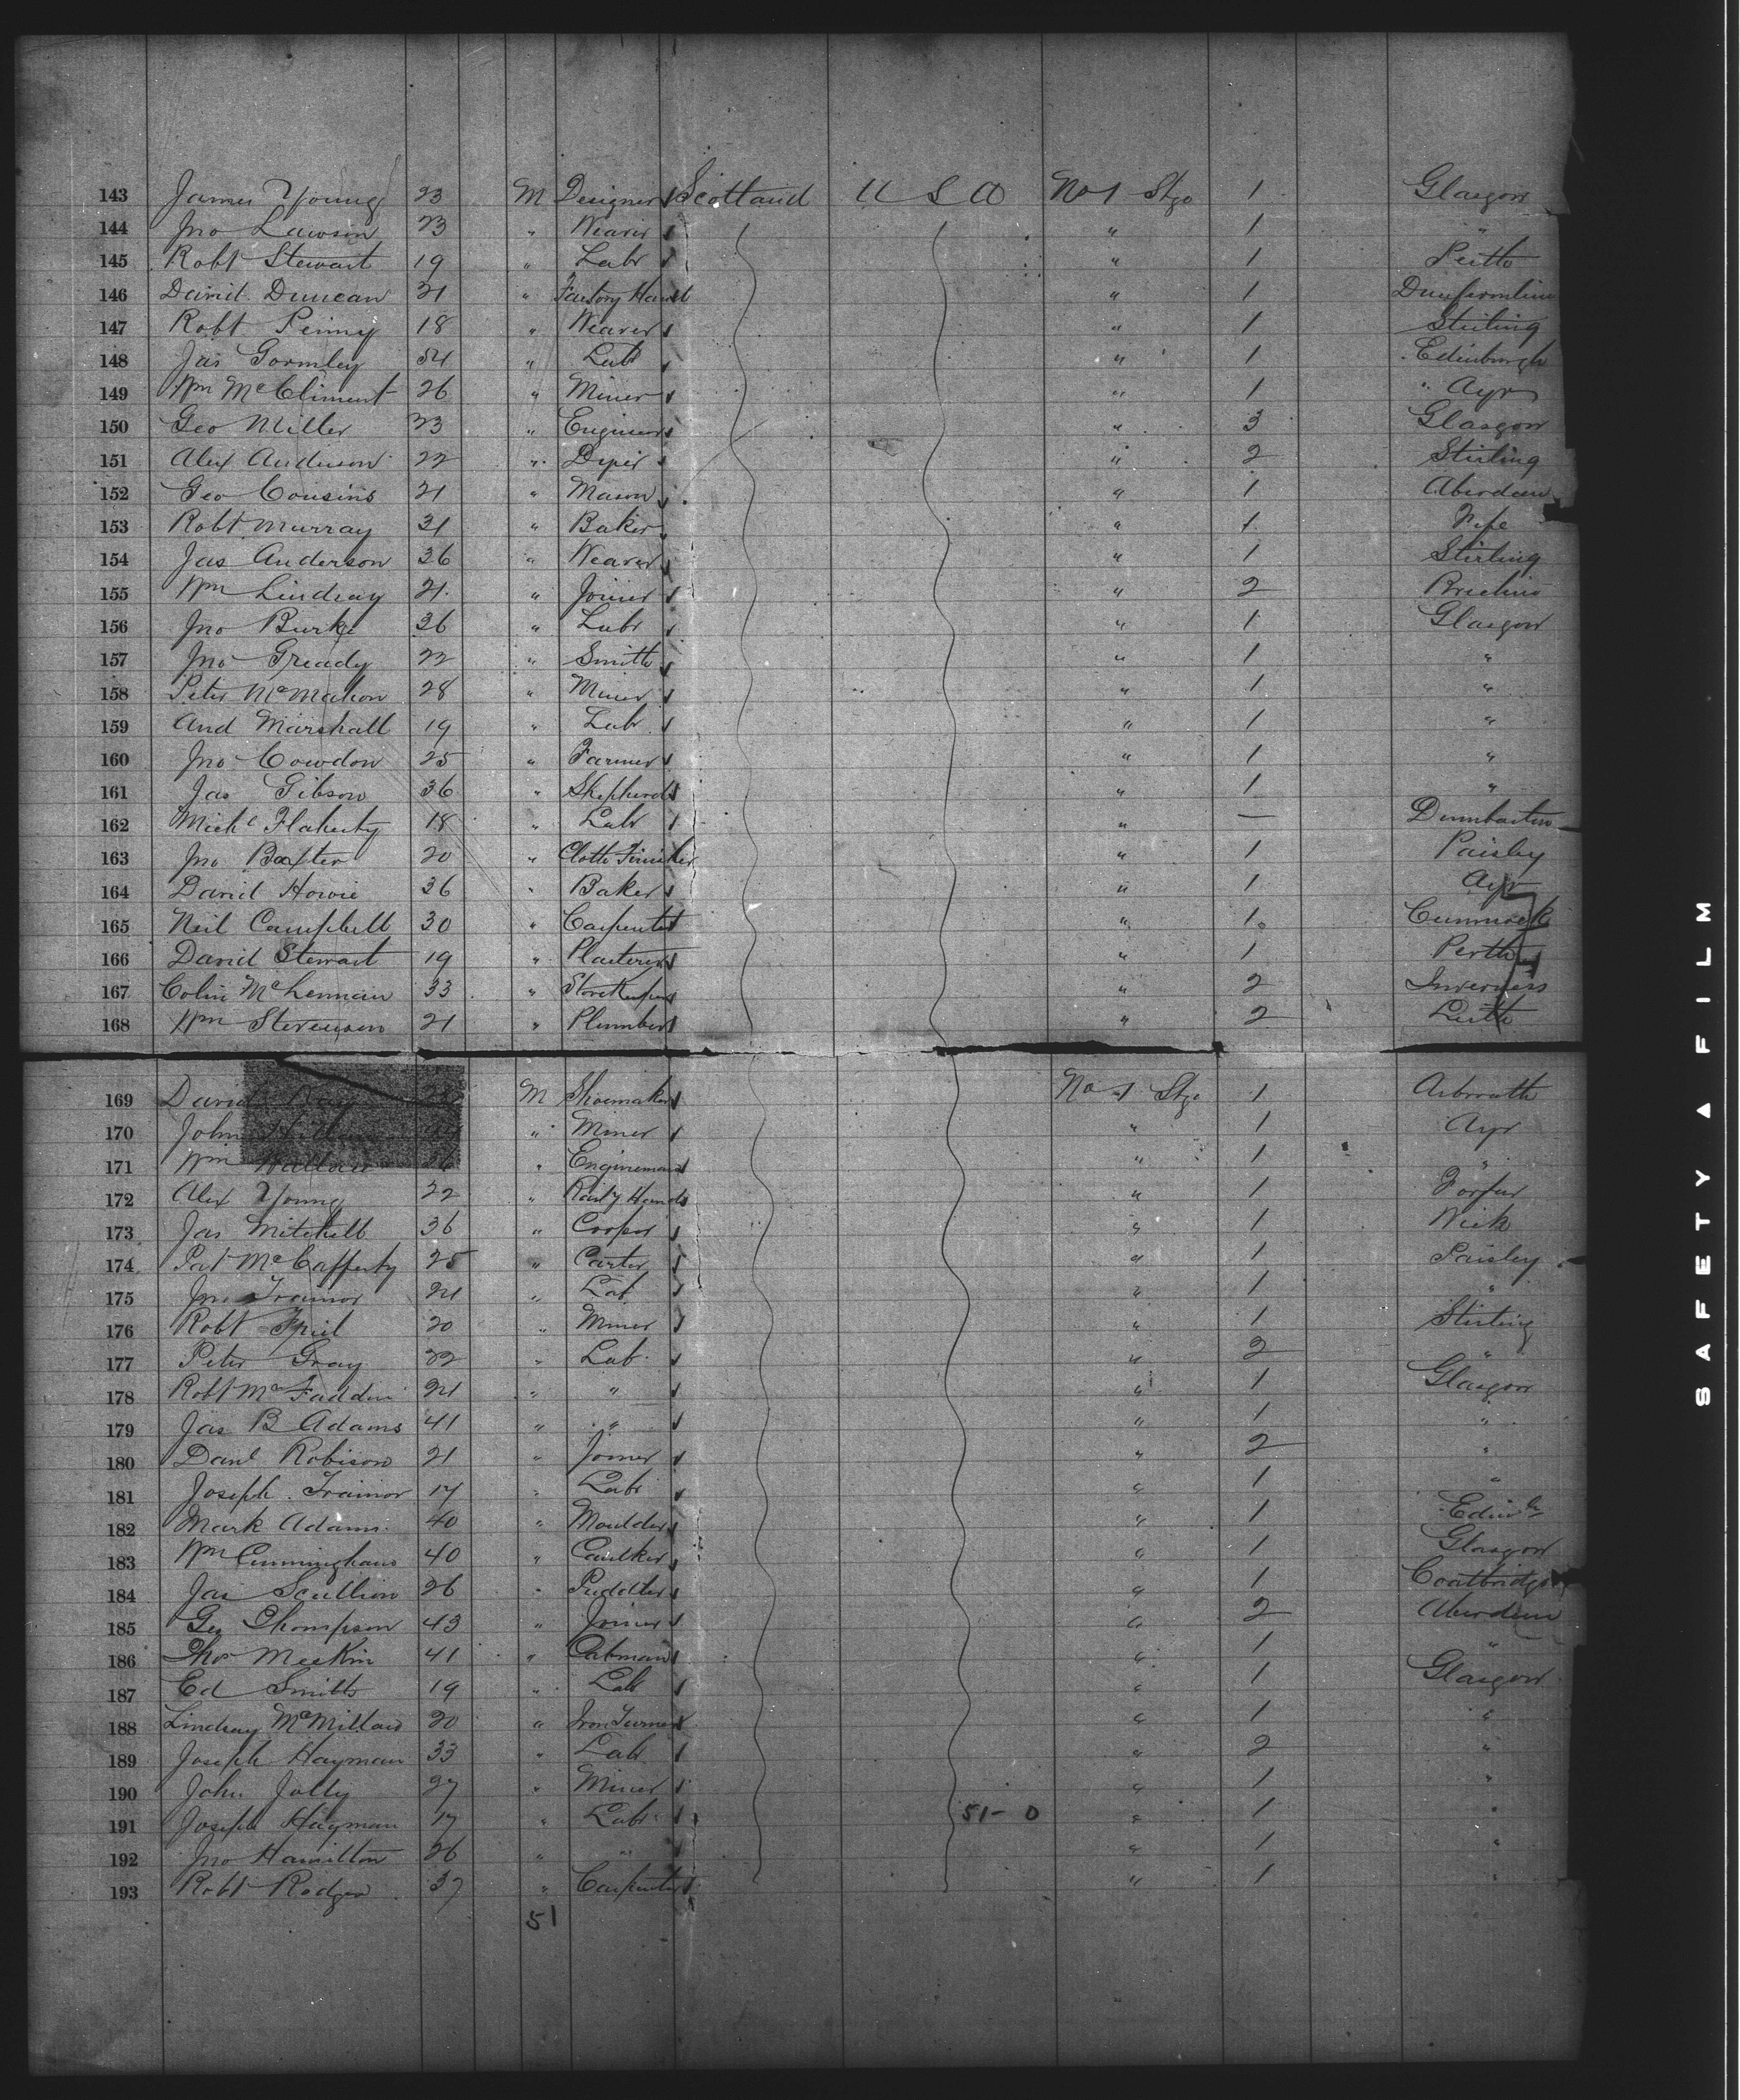 143 James Young 23 M Designer Scotland U S A No 1 Stge 1 Glasgow
144 Jno Lawson 23 " Weaver " 1 "
145 Robt Stewart 19 " Labr " 1 Perth
146 David Duncan 21 " Factory Hand " 1 Dunfermline
147 Robt Penny 18 " Weaver " 1 Stirling
148 Jas Gormley 54 " Labr " 1 Edinburgh
149 Wm McCliment 26 " Miner " 1 Ayr
150 Geo Miller 23 " Engineer " 3 Glasgow
151 Alex Anderson 22 " " 2 Stirling
152 Geo Cousins 21 " Mason " 1 Aberdeen
153 Robt Murray 31 " Baker " 1 Fife
154 Jas Anderson 36 " Weaver " 1 Stirling
155 Wm Lindsay 21 " Joiner " 2 Brechin
156 Jno Burke 36 " Labr " 1 Glasgow
157 Jno Gready 22 " Smith " 1 "
158 Peter McMahon 28 " Miner " 1 "
159 And Marshall 19 " Labr " 1 "
160 Jno Cowdon 25 " Farmer " 1 "
161 Jas Gibson 36 " Shepherd " 1 "
162 Michl Flaherty 18 " Labr " — Dumbarton
163 Jno Baxter 20 " Cloth Finisher " 1 Paisley
164 David Howie 36 " Baker " 1 Ayr
165 Neil Campbell 30 " Carpenter " 1 Cumnock
166 David Stewart 19 " Plasterer " 1 Perth
167 Colin McLennan 33 " Storekeeper " 2 Inverness
168 Wm Stevenson 21 " Plumber " 2 Leith
169 David M Shoemaker No 1 Stge 1 Arbroath
170 John " Miner " 1 Ayr
171 Wm Wallace 26 " Engineman " 1 "
172 Alex Young 22 " Raily Hand " 1 Forfar
173 Jas Mitchell 36 " Cooper " 1 Wick
174 Pat McCafferty 25 " Carter " 1 Paisley
175 Jno Trainor 21 " Lab " 1 "
176 Robt Friel 20 " Miner " 1 Stirling
177 Peter Gray 22 " Lab " 2 "
178 Robt McFadden 21 " " " 1 Glasgow
179 Jas B Adams 41 " " " 1 "
180 Danl Robison 21 " Joiner " 2 "
181 Joseph Trainor 17 " Labr " 1 "
182 Mark Adams 40 " Moulder " 1 Edinb
183 Wm Cunningham 40 " Caulker " 1 Glasgow
184 Jas Scullion 26 " Puddler " 1 Coatbridge
185 Geo Thompson 43 " Joiner " 2 Aberdeen
186 Thos Meekin 41 " Cabman " 1 "
187 Ed Smith 19 " Lab " 1 Glasgow
188 Lindsay McMillan 20 " Iron Turner " 1 "
189 Joseph Hayman 33 " Labr " 2 "
190 John Jolly 27 " Miner " 1 "
191 Joseph Hayman 17 " Labr 51 - 0 " 1 "
192 Jno Hamilton 26 " " " 1 "
193 Robt Rodger 37 " Carpenter " 1 "
51
SAFETY ▲ FILM